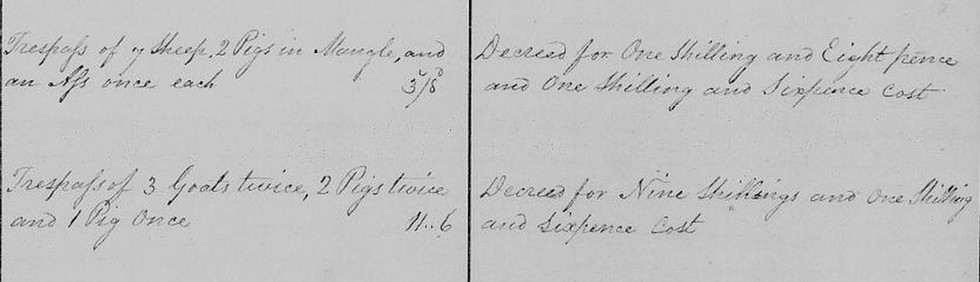 Trespass of 7 Sheep, 2 Pigs in Mangle, and
an Ass once each 3/8
Decreed for One Shilling and Eight pence
and One Shilling and Sixpence Cost
Trespass of 3 Goats twice, 2 Pigs twice
and 1 Pig Once 11..6
Decreed for Nine Shillings and One Shilling
and Sixpence Cost